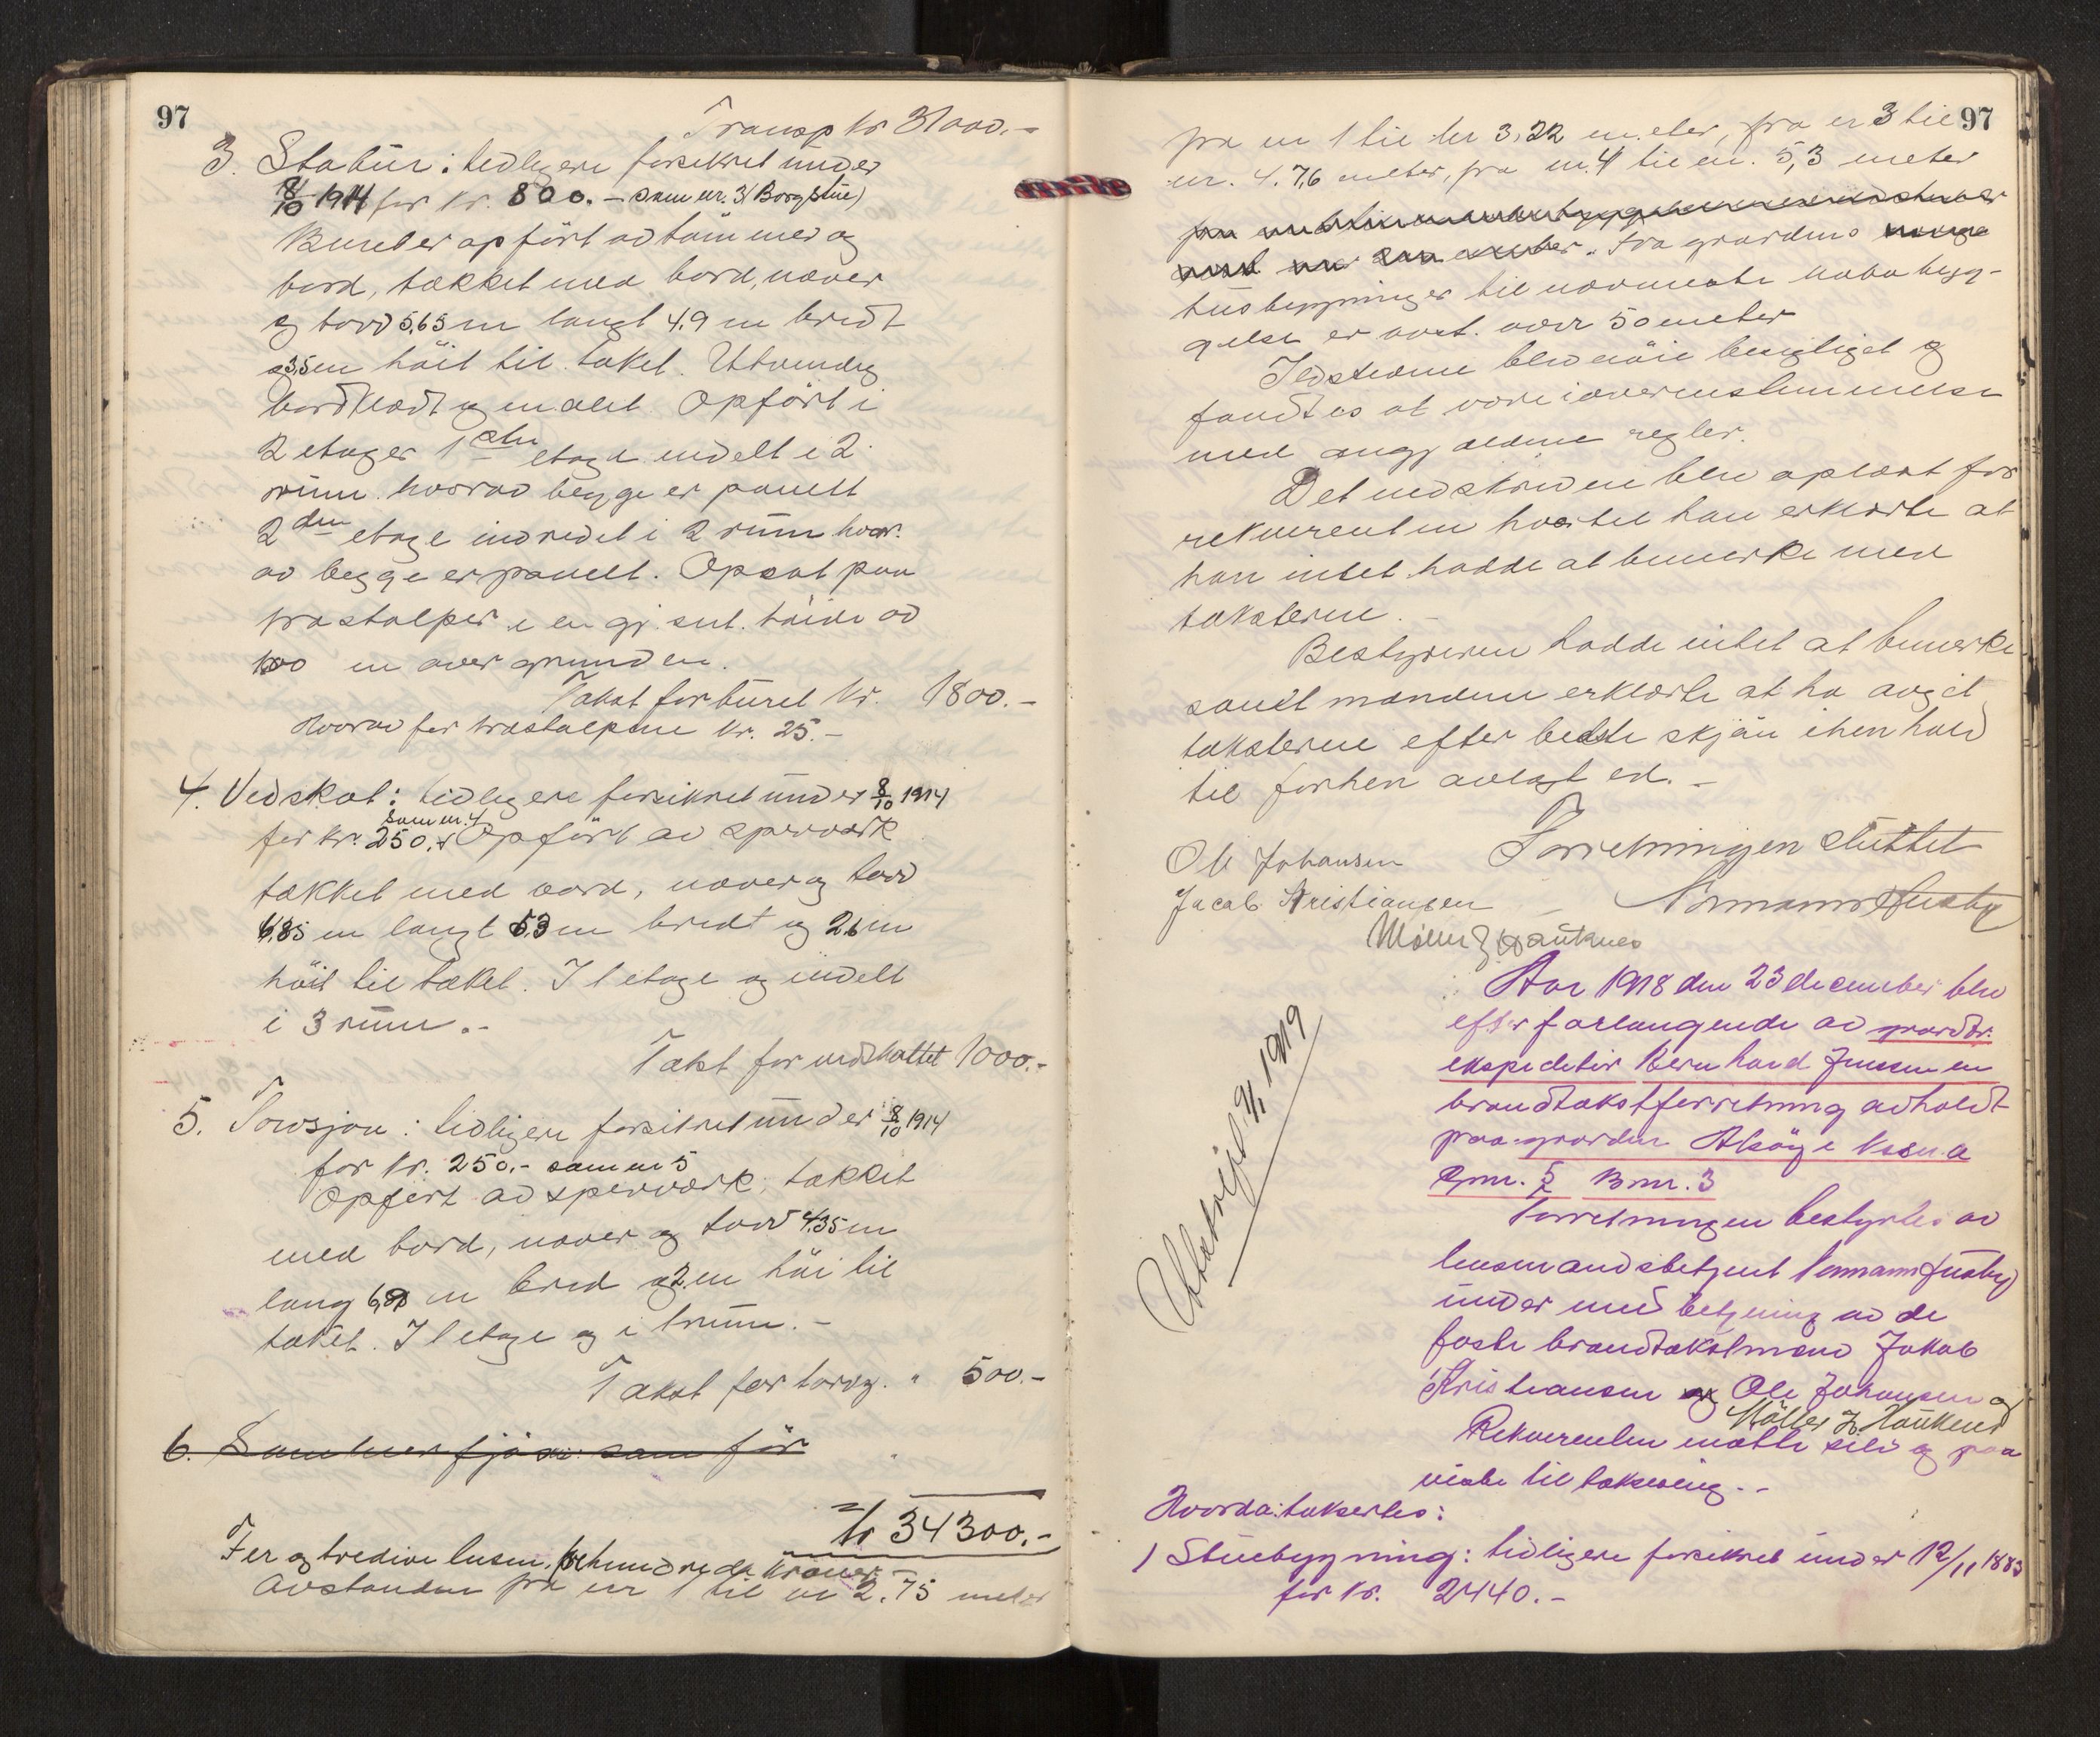 97
Transp kr 31000.-
3. Stabur: tidligere forsikret under
8/10 1914 for kr. 800.- som nr. 3 (Borgstue)
Buret er opført av tømmer og
bord, tækket med bord, næver
og torv 5,65 m langt 4,9 m bredt
og 3,5 m høit til taket. Utvendig
bordklædt og malet. Opført i
2 etager 1ste etage indelt i 2
rum hvorav begge er panelt
2den etage indredet i 2 rum hvor-
av begge er panelt. Opsat paa
træstolper i en gj. snt. høide av
1,00 m over grunden.
Takst for buret kr. 1800.-
Hvorav for træstolpene kr. 25.-
4. Vedskot: tidligere forsikret under 8/10 1914
som nr. 4
for kr. 250.- Opført av sperværk
tækket med bord, næver og torv
6,85 m langt 5,3 m bredt og 2,6 m
høit til taket. I 1 etage og indelt
i 3 rum.-
Takst for vedskottet 1000.-
5. Torvsjon: tidligere forsikret under 8/10 1914
for kr. 250.- som nr 5
Opført av sperværk, tækket
med bord, næver og torv 4,35 m
lang 6,8 m bred og 2 m høi til
taket. I 1 etage og i 1 rum.-
Takst for torvsj. " 500.-
6. Sommerfjøs: som før
kr 34300.-
Fir og tredive tusen, trehundrede kroner -
Avstanden fra nr 1 til nr 2. 75 meter
97
fra nr 1 til nr 3, 22 meter, fra nr 3 til
nr. 4. 7,6 meter, fra nr. 4 til nr. 5, 3 meter
Fra gaardens
husbygninger til nærmeste nabobygg-
gelse er avst. over 50 meter
Ildstederne blev nøie besigtiget og
fandtes at være i overensstemmelse
med angjældende regler.
Det nedskrevne blev oplæst for
rekvirenten hvortil han erklærte at
han intet hadde at bemerke med
taksterne.
Bestyreren hadde intet at bemerke
samt mændene erklærte at ha avgit
taksterne efter bedste skjøn i henhold
til forhen avlagt ed. -
Forretningen sluttet
Ole Johansen
Jacob Kristiansen
Normann Husby
Møller J Hauknes
Utskrevet 9/1 1919
Aar 1918 den 23 december blev
efter forlangende av gaardbr.
ekspeditør Bernhard Jenssen en
brandtakstforretning avholdt
paa gaarden Alsøy i Vesna
Gnr. 5 Bnr. 3
Forretningen bestyrtes av
lensmandsbetjent Normann Husby
under medbetjening av de
faste brandtakstmænd Jakob
Kristiansen Ole Johansen og
Møller J. Hauknes
Rekvirenten møtte selv og paa
viste til taksering. -
Hvorda: taksertes:
1 Stuebygning: tidligere forsikret under 12/11 1883
for kr. 2440.-